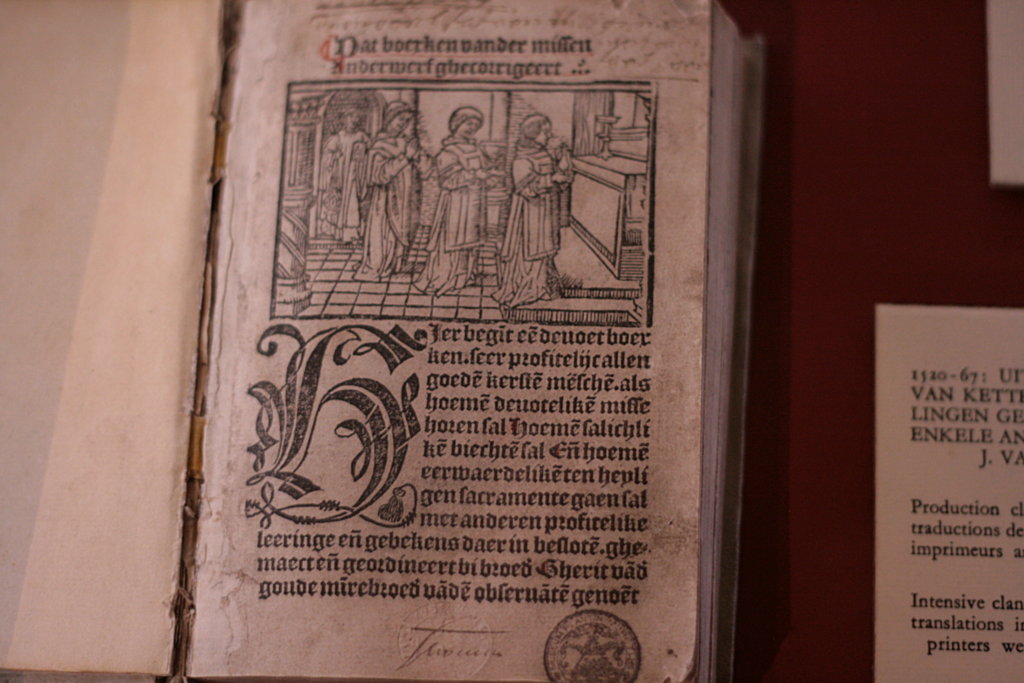 Dat boerken vander missen
Anderwerf ghecorrigeert
Hier begīt eē deuoet boer
ken. seer profitelijc allen
goedē kerstē mēschē. als
hoemē deuotelikē misse
horen sal Hoemē salichli
kē biechtē sal Eñ hoemē
eerwaerdelikē ten heyli
gen sacramente gaen sal
met anderen profitelike
leeringe eñ gebekens daer in beslotē. ghe-
maect eñ geordineert bi broed Gherit vād
goude mīrebroed vādē obseruātē genoēt
1520-67: UI
VAN KETTE
LINGEN GE
ENKELE AN
J. VA
Production cl
traductions de
imprimeurs a
Intensive clan
translations i
printers we